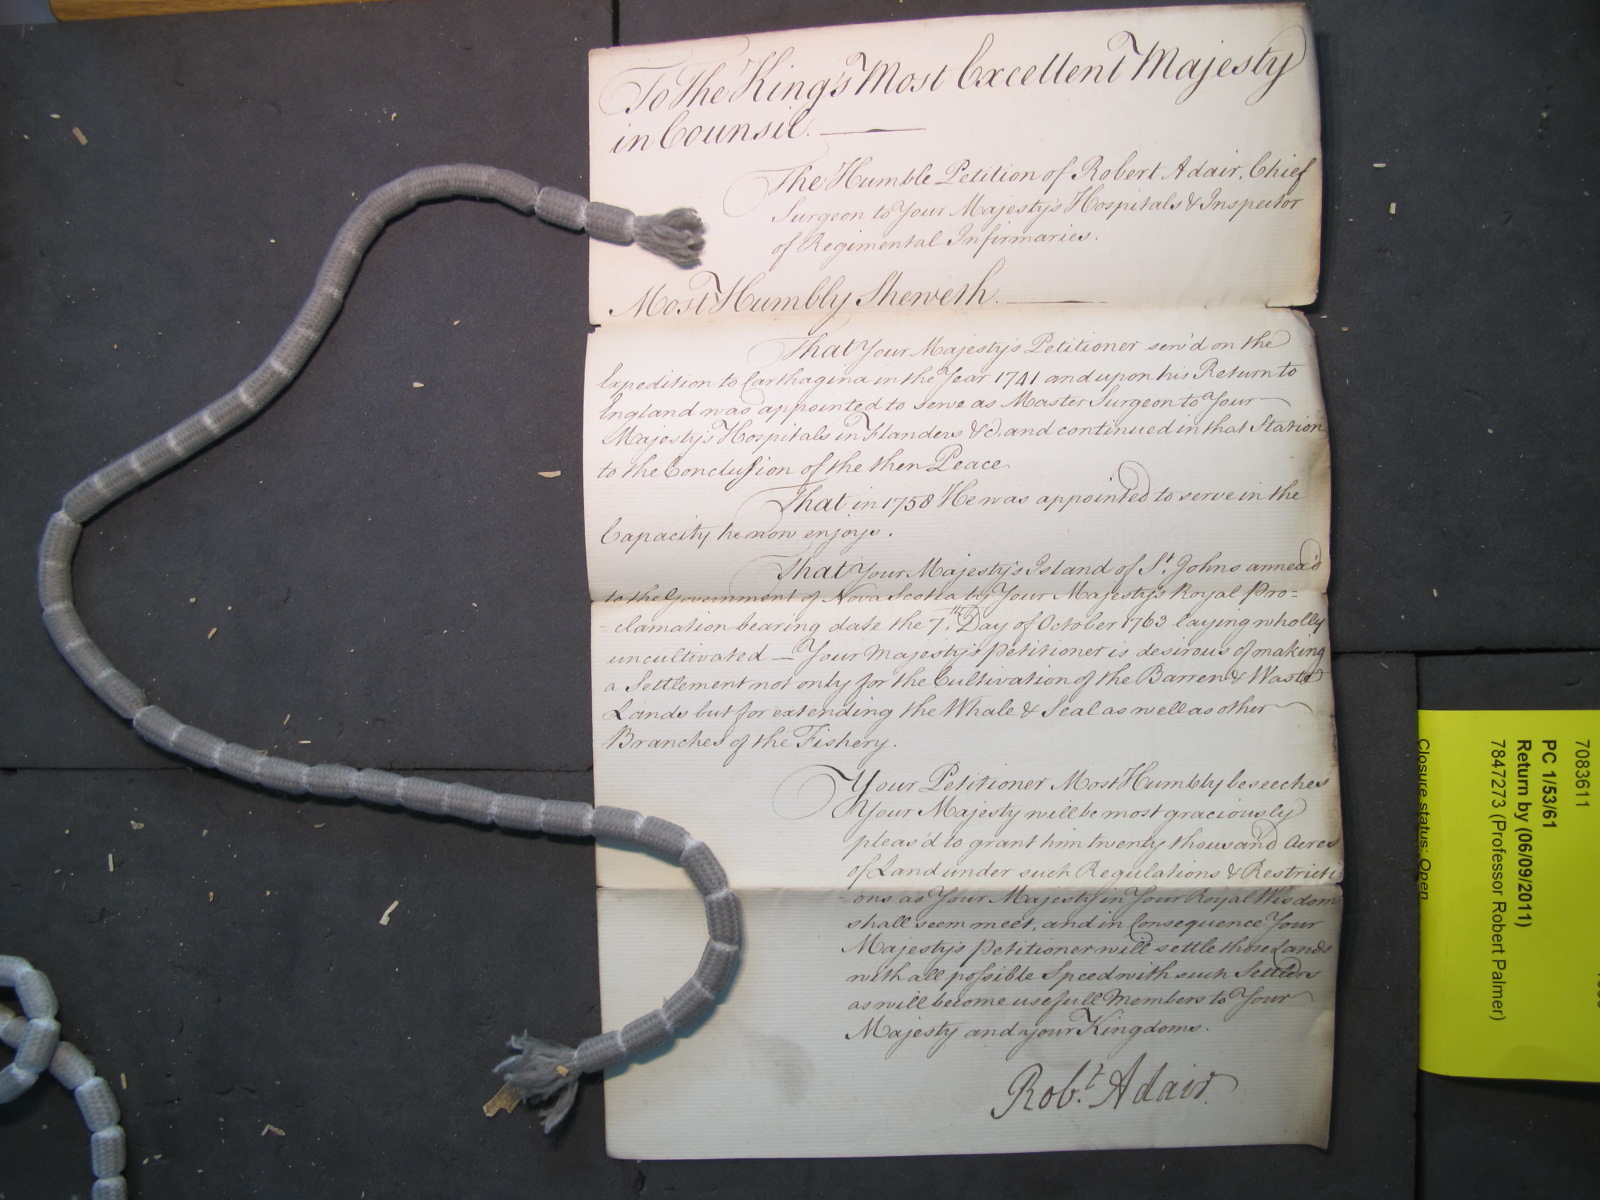 To The King's Most Excellent Majesty
in Counsil.
The Humble Petition of Robert Adair, Chief
Surgeon to Your Majesty's Hospitals & Inspector
of Regimental Infirmaries.
Most Humbly Sheweth.
That Your Majesty's Petitioner serv'd on the
Expedition to Carthagena in the Year 1741 and upon his Return to
England was appointed to serve as Master Surgeon to Your
Majesty's Hospitals in Flanders &c. and continued in that Station
to the Conclusion of the then Peace.
That in 1758 He was appointed to serve in the
Capacity he now enjoys.
That Your Majesty's Island of St. Johns annex'd
to the Government of Nova Scotia by Your Majesty's Royal Pro=
-clamation bearing date the 7th. Day of October 1763 laying wholly
uncultivated — Your Majesty's Petitioner is desirous of making
a Settlement not only for the Cultivation of the Barren & Waste
Lands but for extending the Whale & Seal as well as other
Branches of the Fishery.
Your Petitioner Most Humbly beseeches
Your Majesty will be most graciously
pleas'd to grant him twenty thousand Acres
of Land under such Regulations & Restricti
-ons as Your Majesty in Your Royal Wisdom
shall seem meet, and in Consequence Your
Majesty's Petitioner will settle those Lands
with all possible Speed with such Settlers
as will become usefull Members to Your
Majesty and your Kingdoms.
Robt. Adair.
7083611
PC 1/53/61
Return by (06/09/2011)
7847273 (Professor Robert Palmer)
Closure status: Open